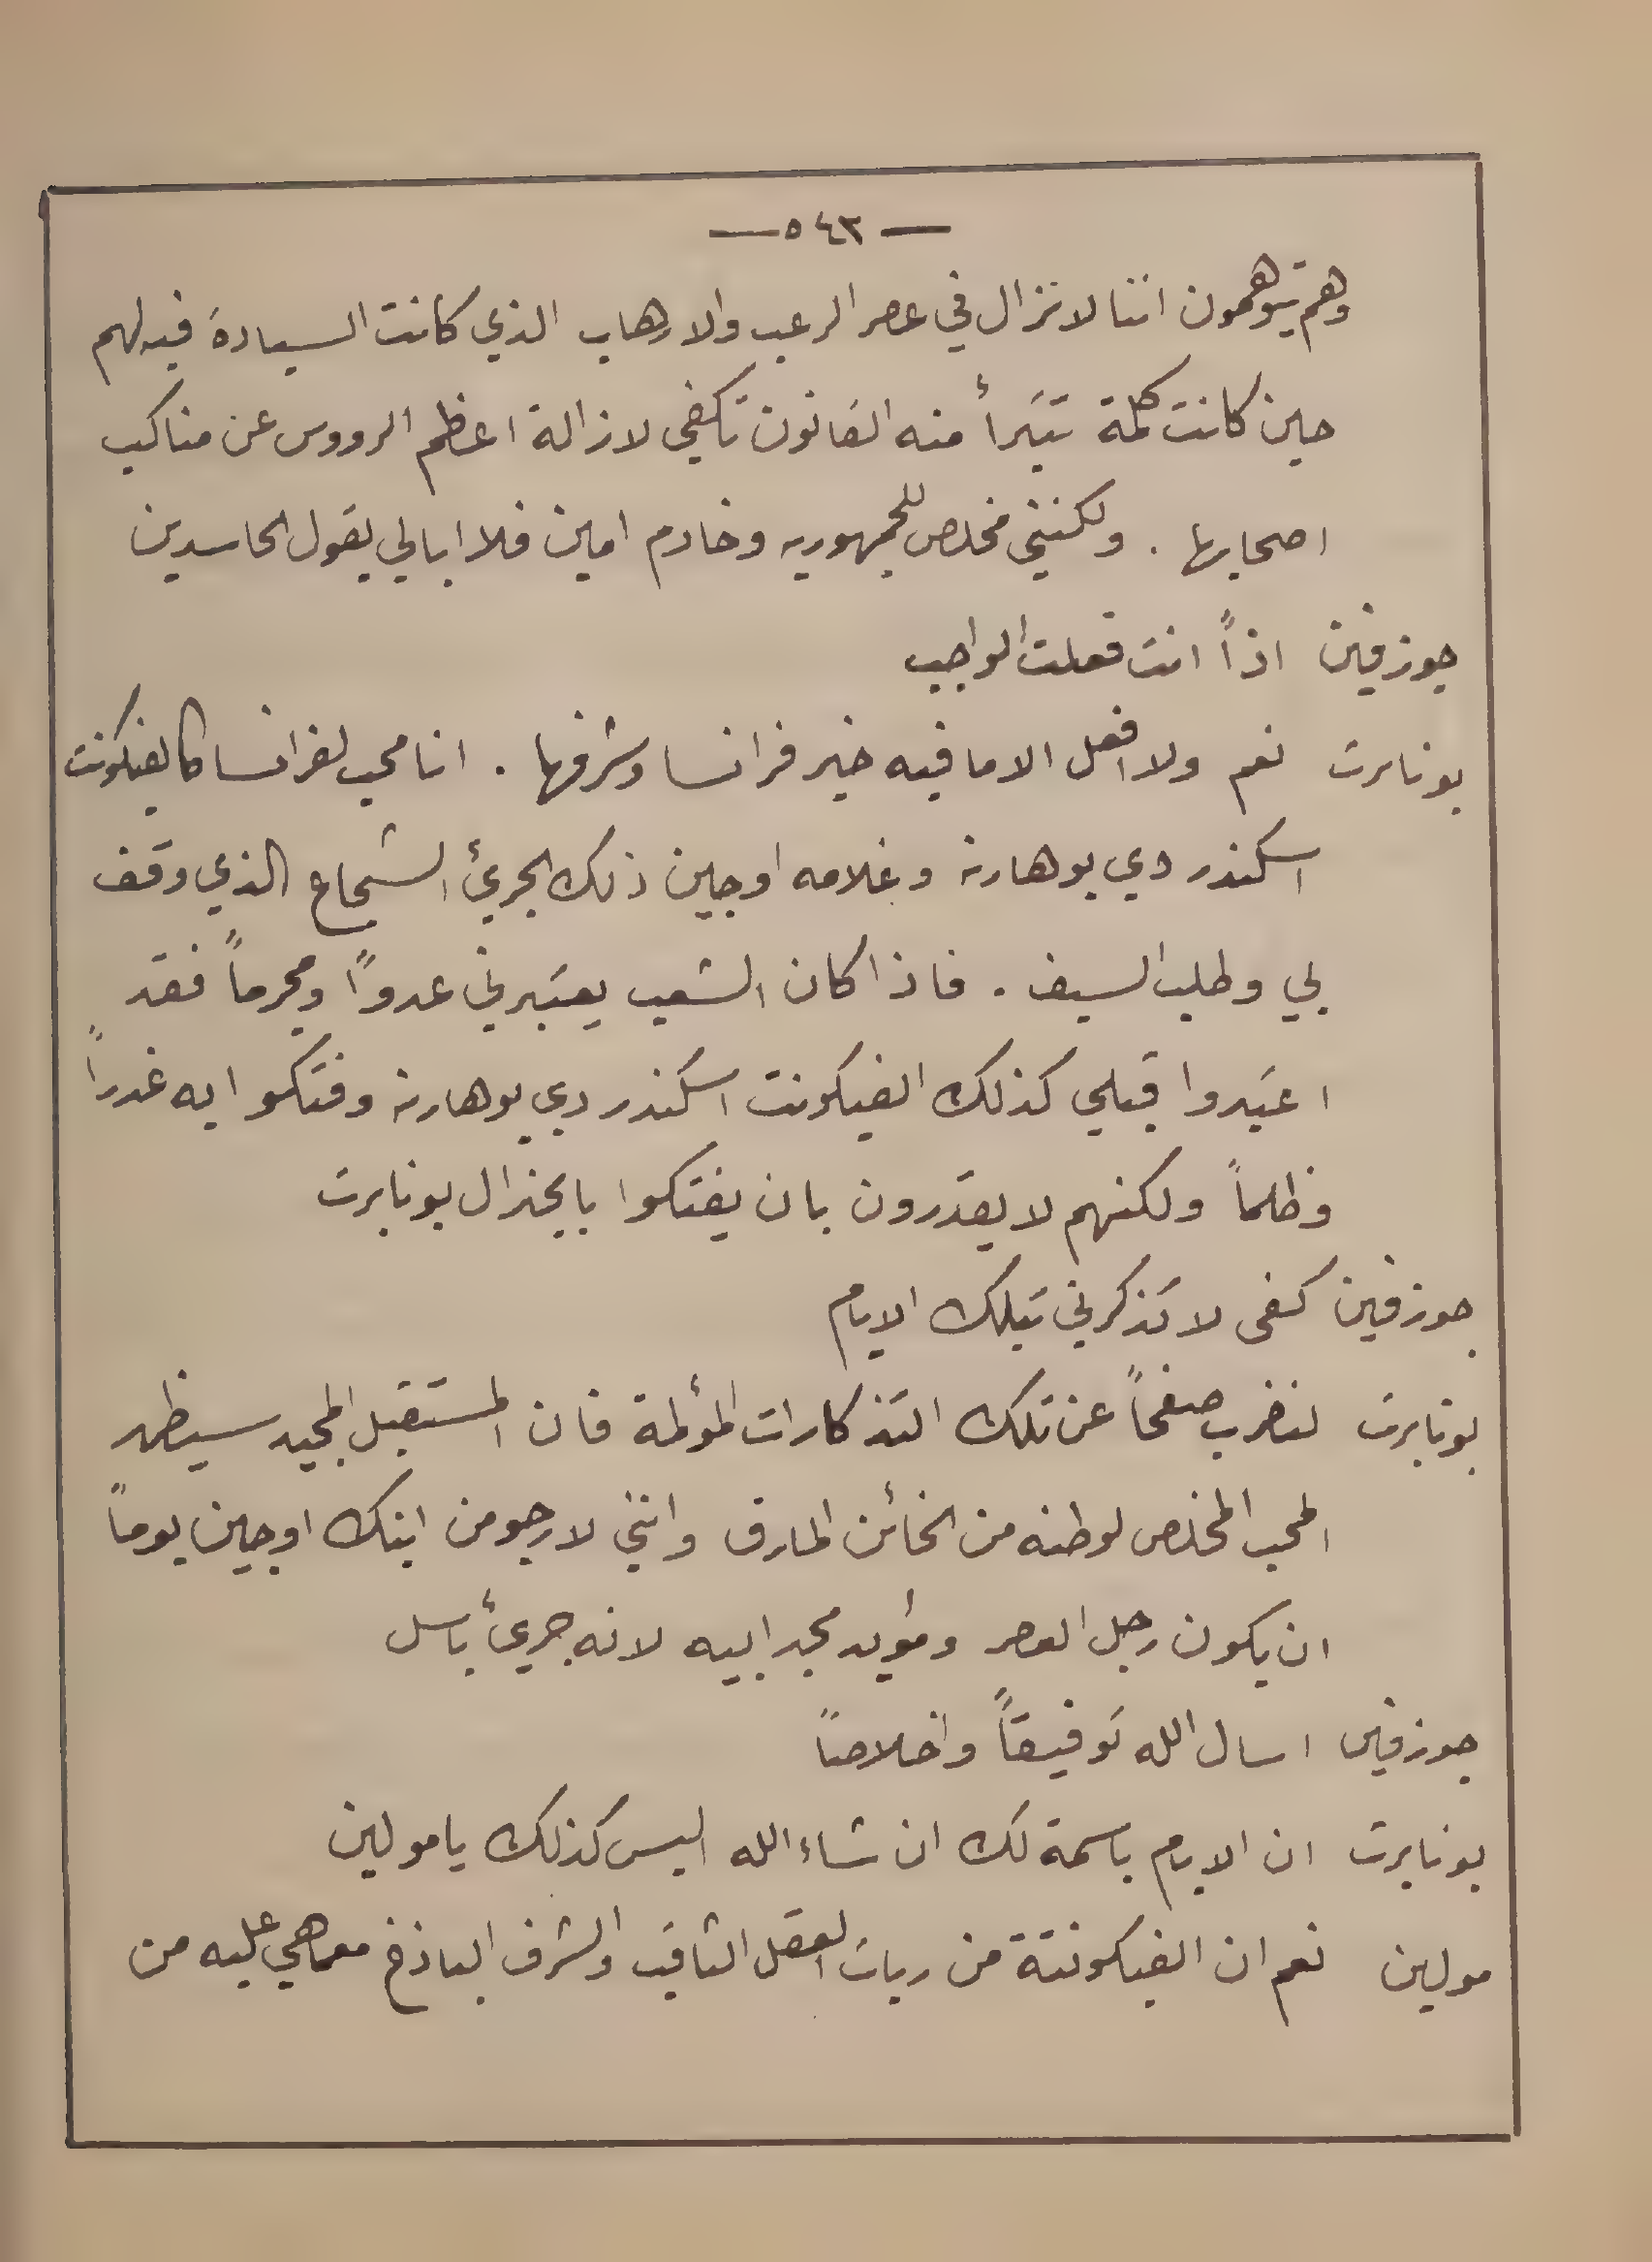 — ٥٤٣ —
وهم يتوهمون اننا لا نزال في عصر الرعب والارهاب الذي كانت السيادة فيه لهم
حين كانت كلمة تتبرأ منه القانون تكفي لازالة اعظم الرووس عن مناكب
اصحابها . ولكنني مخلص للجمهوريه وخادم امين فلا ابالي بقول الحاسدين
جوزفين اذاً انت فعلت الواجب
بونابرت نعم ولا افعل الا ما فيه خير فرانسا وشرفها . انا محب لفرانسا كالفيكونت
اسكندر دي بوهارنه وغلامه اوجين ذلك الجرئ الشجاع الذي وقف
بي وطلب السيف . فاذا كان الشعب يعتبرني عدوًا ومجرماً فقد
اعتبروا قبلي كذلك الفيكونت اسكندر دي بوهارنه وفتكوا به غدراً
وظلماً ولكنهم لا يقدرون بان يفتكوا بالجنرال بونابرت
جوزفين كفى لا تذكرني بتلك الايام
بونابرت لنضرب صفحاً عن تلك التذكارات المؤلمة فان المستقبل المجيد سيظهر
المحب المخلص لوطنه من الخائن المارق وانني لارجو من ابنك اوجين يوماً
ان يكون رجل العصر ومؤيد مجد ابيه لانه جرئ باسل
جوزفين اسال الله توفيقاً واخلاصاً
بونابرت ان الايام باسمة لك ان شاء الله اليس كذلك يا مولين
مولين نعم ان الفيكونتة من ربات العقل الثاقب والشرف الباذخ مع ما هي عليه من